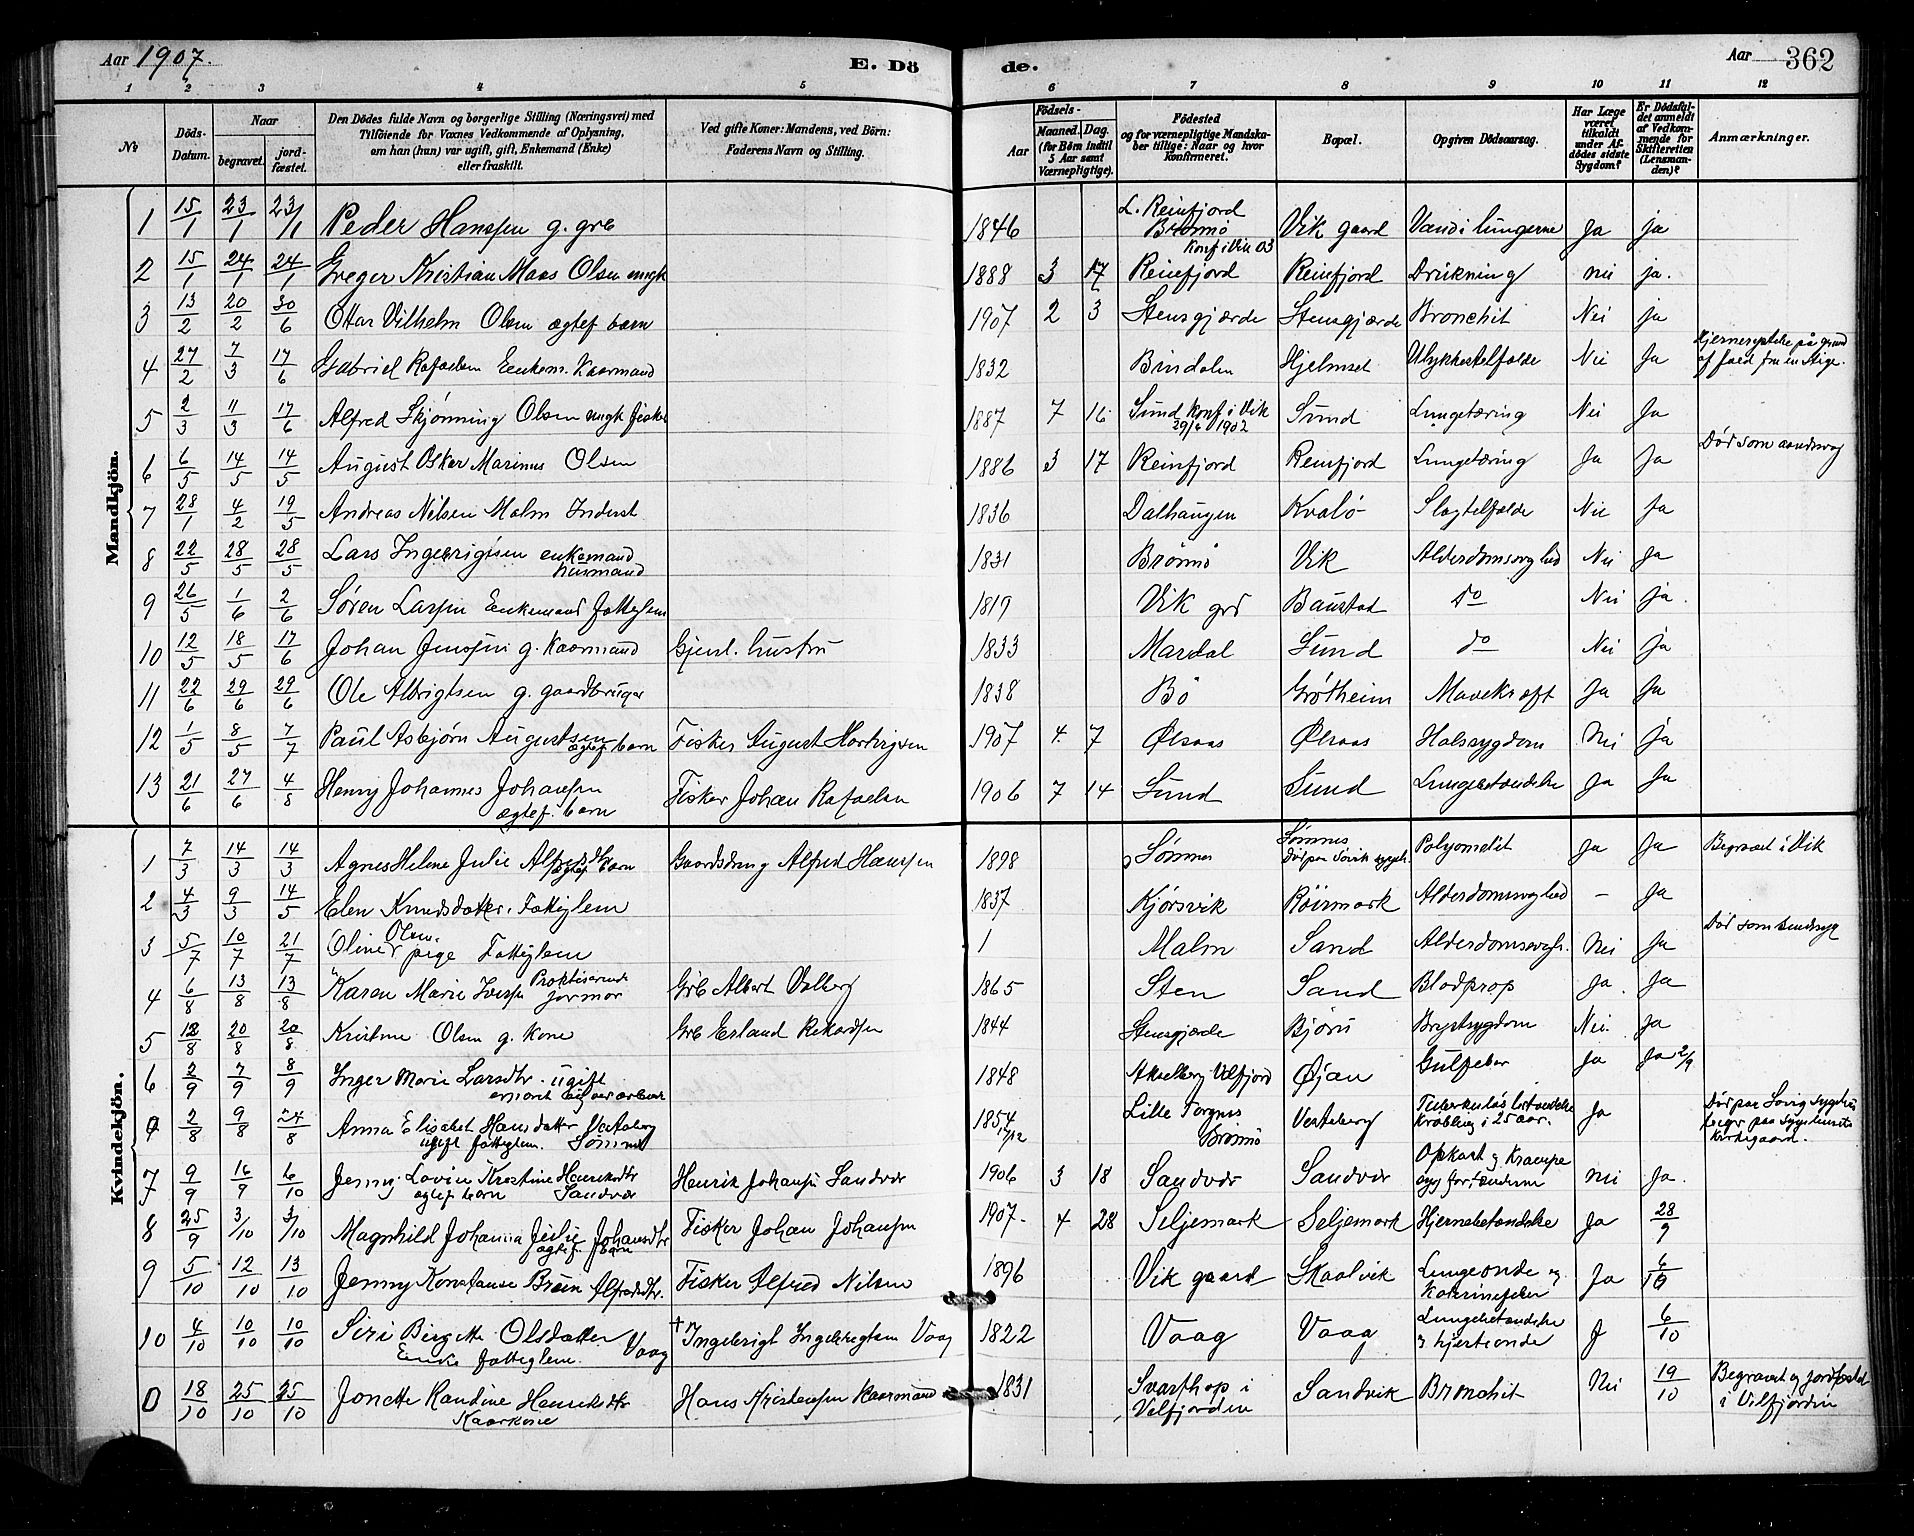 Aar 1907. E. Dö de. Aar 362
1 2 3 4 5 6 7 8 9 10 11 12
No
Döds-Datum.
Naar
begravet.
jordfæstet.
Den Dödes fulde Navn og borgerlige Stilling (Næringsvei) med
Tilföiende for Voxnes Vedkommende af Oplysning,
om han (hun) var ugift, gift, Enkemand (Enke)
eller fraskilt.
Ved gifte Koner: Mandens, ved Börn:
Faderens Navn og Stilling.
Födsels-
Aar
Maaned. Dag.
(for Börn indtil
5 Aar samt
Værnepligtige).
Födested
og for værnepligtige Mandskaber
tillige: Naar og hvor
konfirmeret.
Bopæl.
Opgiven Dödsaarsag.
Har Læge
været
tilkaldt
under Afdödes
sidste
Sygdom?
Er Dödsfaldet
anmeldt
af Vedkommende
for
Skifteretten
(Lensmanden)?
Anmærkninger.
Mandkjön.
1 15/1 23/1 23/1 Peder Hanssen g. grb 1846 L. Reinfjord Brønnø Vik gaard Vand i lungerne Ja ja
2 15/1 24/1 24/1 Greger Kristian Maas Olsen ungk 1888 3 17 Konf i Vik 03 Reinfjord Reinfjord Drukning nei ja.
3 13/2 20/2 30/6 Ottar Vilhelm Olsen ægtef barn 1907 2 3 Stensgjærde Stensgjærde Bronchit Nei ja
4 27/2 7/3 17/6 Gabriel Rafaelsen Enkem. Kaarmand 1832 Bindalen Hjelmset Ulykkestilfælde Nei Ja Hjernerystelse på grund
af fald fra en stige.
5 2/3 11/3 17/6 Alfred Skjønning Olsen ungk fisker 1887 7 16 Sund Konf i Vik 29/6 1902 Sund Lungetæring Nei Ja
6 6/5 14/5 14/5 August Oskar Marinus Olsen 1886 3 17 Reinfjord Reinfjord Lungetæring Ja Ja Död som sindssyg
7 28/1 4/2 19/5 Andreas Nilsen Malm Inderst 1836 Dalhaugen Kvalö Slagtilfælde Nei Ja
8 22/5 28/5 28/5 Lars Ingebrigtsen enkemand
husmand 1831 Brönnö Vik Alderdomssvaghed Nei Ja
9 26/5 1/6 2/6 Søren Larsen Enkemand Fattiglem 1819 Vik grd Baustad do Nei ja.
10 12/5 18/5 17/6 Johan Jenssen g. Kaarmand Gjenl. hustru 1833 Mardal Sund do Nei ja
11 22/6 29/6 29/6 Ole Albrigtsen g. gaardbruger 1838 Bö Gröttheim Mavekræft Ja Ja
12 1/5 8/5 7/7 Paul Asbjørn Augustsen
ægtef barn Fisker August Hartvigsen 1907 4 7 Ølsaas Ølsaas Halssygdom Nei ja
13 21/6 27/6 4/8 Henry Johannes Johansen
ægtef. barn Fisker Johan Rafaelsen 1906 7 14 Sund Sund Lungebetændelse Ja Ja
Kvindekjön.
1 7/3 14/3 14/3 Agnes Helene Julie Alfredsdtr
ægtef barn Gaardsdreng Alfred Hanssen 1898 Sømnes Sømnes
Död paa Søvik sygeh. Polyomelit Ja Ja Begravet i Vik
2 4/3 9/3 14/5 Elen Knudsdatter. Fattiglem 1837 Kjørsvik Röirmark Alderdomssvaghed – Ja
3 5/7 10/7 21/7 Oline Olsen.
pige Fattiglem 1 Malm Sand Alderdomssvagh. Nei Ja Död som sindssyg
4 6/8 13/8 13/8 Karen Marie Iversen Praktiserende
jormor Grb Albert Valberg 1865 Sten Sand Blodprop Ja. Ja
5 12/8 20/8 20/8 Kristine Olsen g. Kone Grb Erland Rikardsen 1844 Stensgjærde Bjørü Brystsygdom Nei. Ja
6 2/9 7/9 8/9 Inger Marie Larsdtr. ugift 1848 Akselberg Velfjord Øjan Gulfeber Ja Ja 2/9
2/8 9/8 24/8 Anna Elisabet Hansdatter Vesteberg
ugift fattiglem. Sömnes 1854
17/12 Lille Torgnes
Brønnö Vesteberg Tuberkuløs betændelse
Krøbling i 25 aar. Ja Död paa Søvig Sygehus
Kirkegaard.
7 9/9 16/9 6/10 Jenny Lovise Kristine Henriksdtr
ægtef barn Sandvær Henrik Johansen Sandvær 1906 3 18 Sandvær Sandvær Opkast og Krampe Nei Ja.
8 25/9 3/10 3/10 Magnhild Johanna Julie Johansdtr
ægtef. barn Fisker Johan Johansen 1907. 4 28 Seljemark Seljemark Hjernebetændelse Ja 28/9
9 5/10 12/10 13/10 Jenny Konstanse Brun Alfredsdtr. Fisker Alfred Nilsen 1896 Vik gaard Skaalvik Lungeonde og Ja 6/10
10 4/10 10/10 10/10 Siri Birgitte Olsdatter Vaag
Enke fattiglem. † Ingebrigt Ingebrigtsen Vaag 1822 Vaag Vaag Lungebetændelse
og hjerteonde J 6/10
0 18/10 25/10 25/10 Jonette Randine Henriksdtr
Kaarkone Hans Kristensen Kaarmand 1831 Svarthop i
Velfjorden Sandvik Bronchit Nei 19/10 Begravet og jordfæstet
i Velfjorden